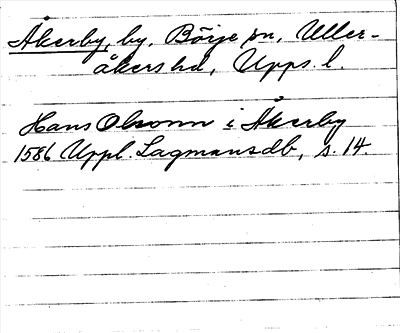 Åkerby, by, Börje sn, Uller-
åkers hd, Upps. l.
Hans Olsonn i Åkerby
1586 Uppl. Lagmansdb, s. 14.